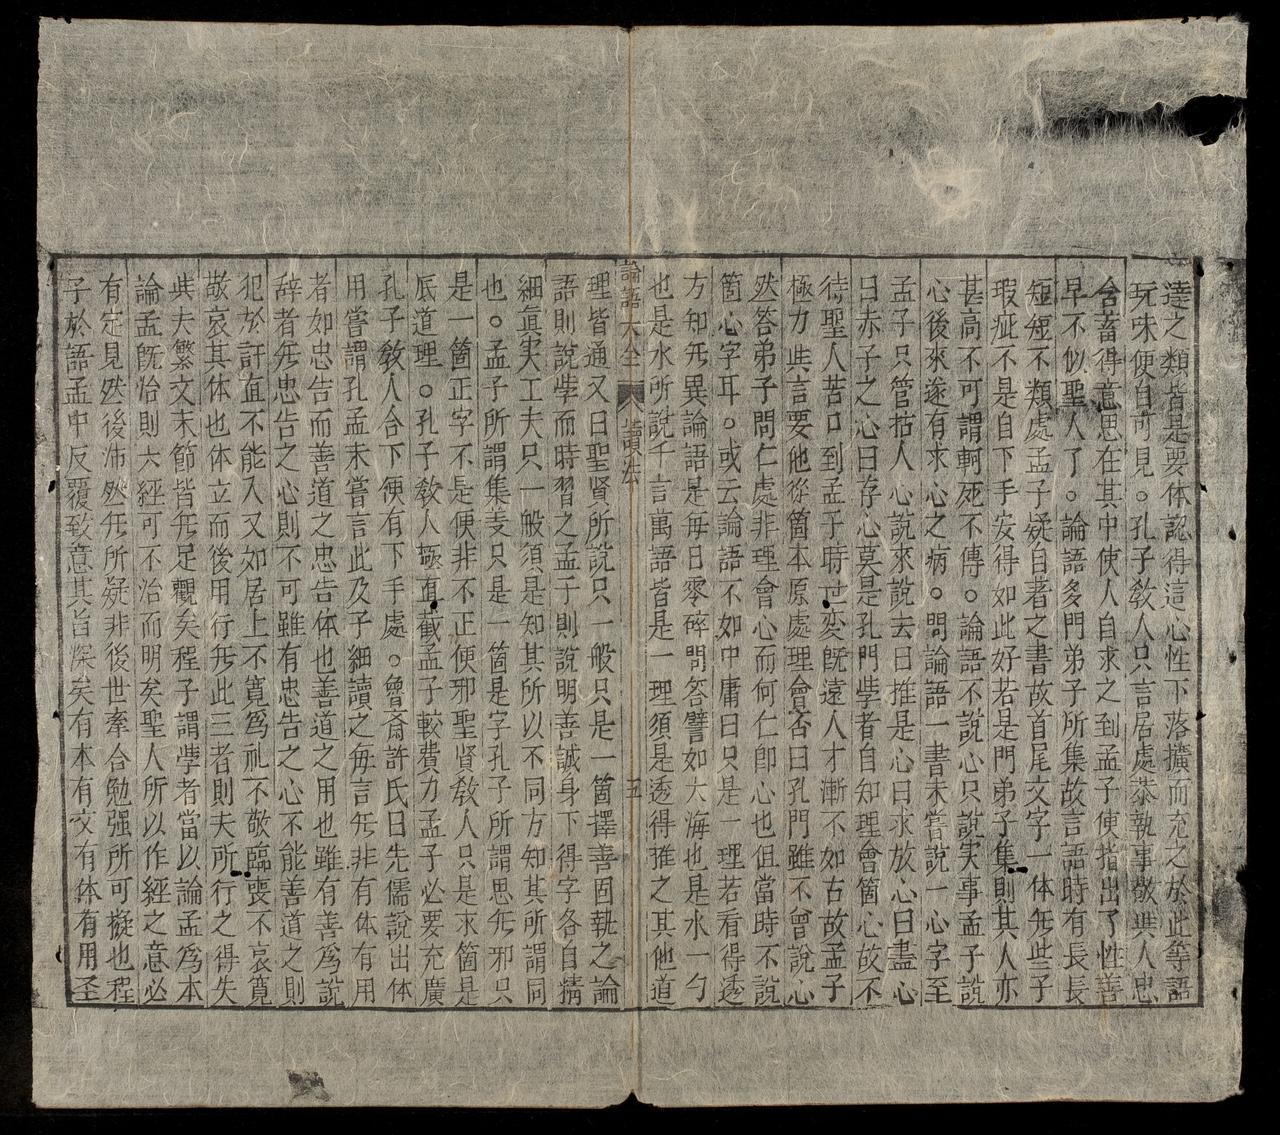 達之類皆是要体認得這心性下落擴而充之於此等語
玩味便自可見。孔子教人只言居處恭執事敬與人忠
含畜得意思在其中使人自求之到孟子使指出了性善
早不似聖人了。論語多門弟子所集故言語時有長長
短短不類處孟子疑自著之書故首尾文字一体無些子
瑕疵不是自下手安得如此好若是門弟子集則其人亦
甚高不可謂軻死不傳。論語不說心只說実事孟子說
心後來遂有求心之病。問論語一書未嘗說一心字至
孟子只管拈人心說來說去曰推是心曰求放心曰盡心
曰赤子之心曰存心莫是孔門學者自知理會箇心故不
待聖人苦口到孟子時世変旣遠人才漸不如古故孟子
極力與言要他從箇本原處理會否曰孔門雖不曾說心
然答弟子問仁處非理會心而何仁即心也但當時不說
箇心字耳。或云論語不如中庸曰只是一理若看得透
方知無異論語是每日零碎問答譬如大海也是水一勺
也是水所說千言萬語皆是一理須是透得推之其他道
論語大全 讀法 五
理皆通又曰聖賢所說只一般只是一箇擇善固執之論
語則說學而時習之孟子則說明善誠身下得字各自精
細真実工夫只一般須是知其所以不同方知其所謂同
也。孟子所謂集义只是一箇是字孔子所謂思無邪只
是一箇正字不是便非不正便邪聖賢教人只是求箇是
底道理。孔子教人極直截孟子較費力孟子必要充廣
孔子教人合下便有下手處。魯斎許氏曰先儒說出体
用嘗謂孔孟未嘗言此及子細讀之每言無非有体有用
者如忠告而善道之忠告体也善道之用也雖有善為說
辞者無忠告之心則不可雖有忠告之心不能善道之則
犯於訐直不能入又如居上不寬為礼不敬臨喪不哀寬
敬哀其体也体立而後用行無此三者則夫所行之得失
與夫繁文末節皆無足觀矣程子謂學者當以論孟為本
論孟旣治則六經可不治而明矣聖人所以作經之意必
有定見然後沛然無所疑非後世牽合勉强所可擬也程
子於語孟中反覆致意其旨深矣有本有文有体有用圣